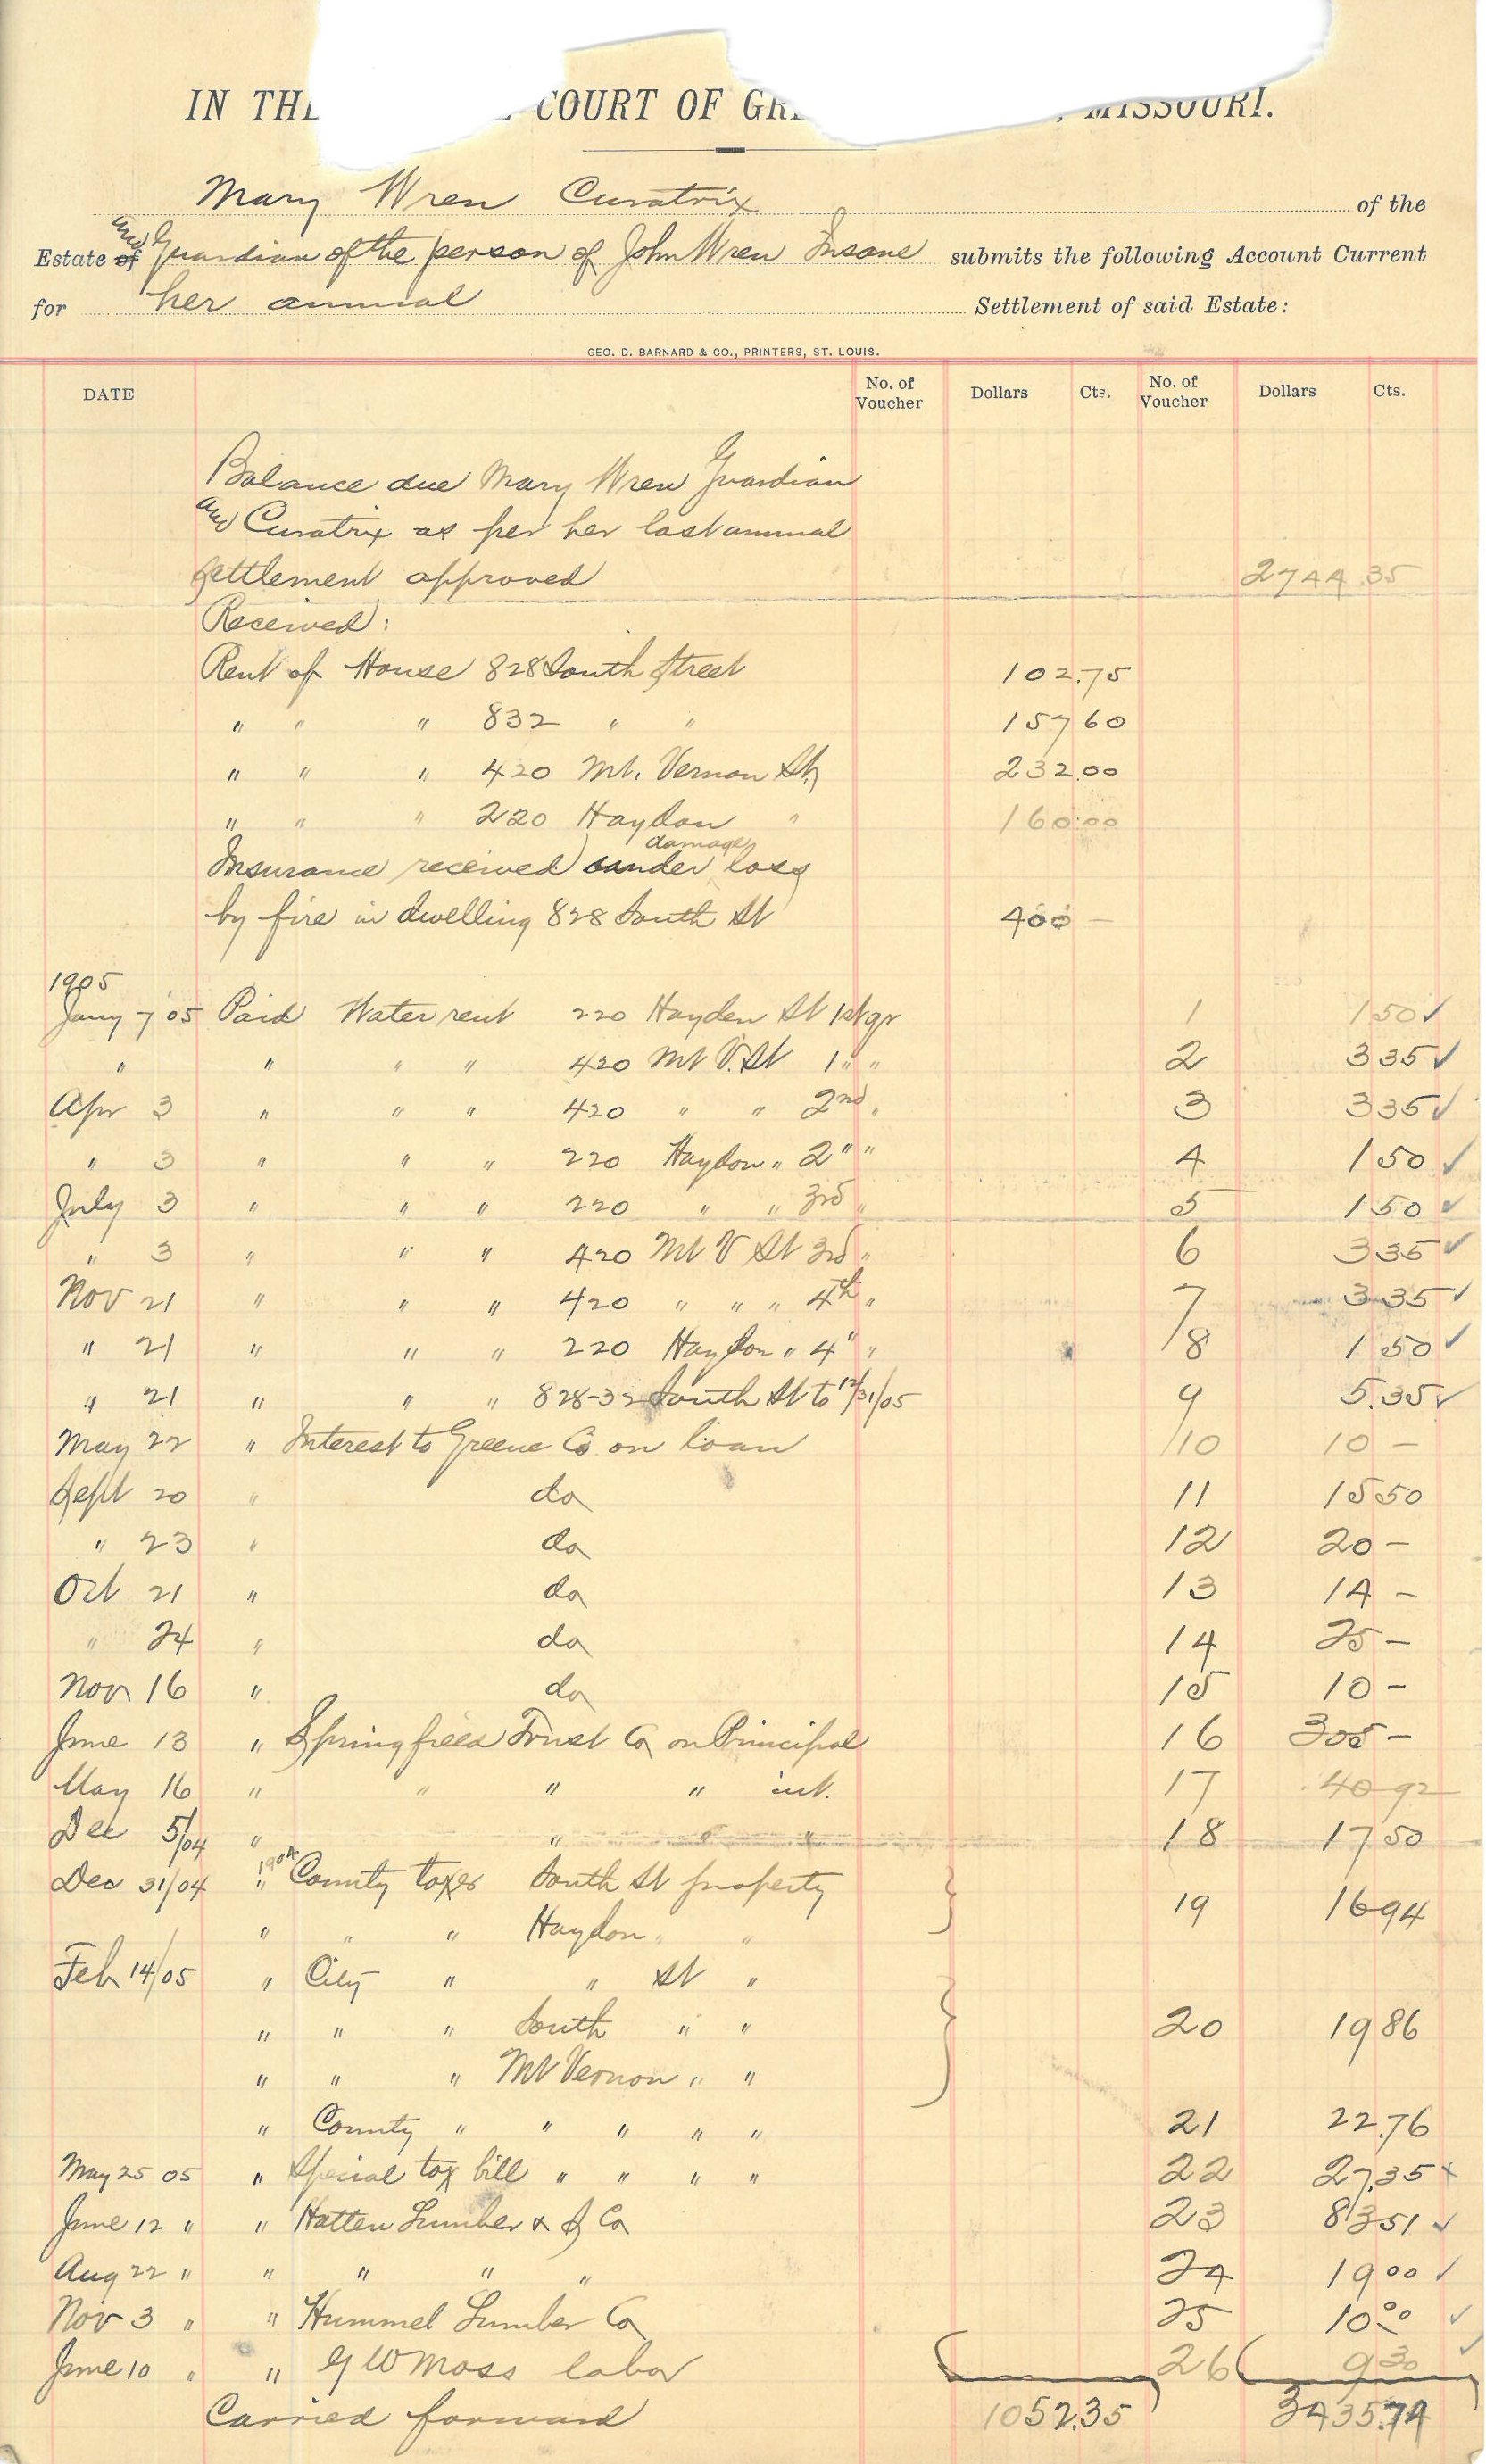 IN THE COURT OF GRE , MISSOURI.
Mary Wren Curatrix of the
Estate of and Guardian of the person of John Wren Insane submits the following Account Current
for her annual Settlement of said Estate:
GEO. D. BARNARD & CO., PRINTERS, ST. LOUIS.
DATE No. of Voucher Dollars Cts. No. of Voucher Dollars Cts.
Balance due Mary Wren Guardian
and Curatrix as per her last annual
settlement approved 2744.35
Received:
Rent of House 828 South Street 102.75
" " " 832 " " 157 60
" " " 420 Mt. Vernon St, 232.00
" " " 220 Haydon " 160.00
Insurance received under damage loss
by fire in dwelling 828 South St 400 —
1905
Jany 7 '05 Paid Water rent 220 Hayden St 1st qr 1 1 50 ✓
" " " " 420 Mt V. St 1 " " 2 3 35 ✓
Apr 3 " " " 420 " " 2nd " 3 3 35 ✓
" 3 " " " 220 Haydon " 2 " " 4 1 50 ✓
July 3 " " " 220 " " 3rd " 5 1 50 ✓
" 3 " " " 420 Mt V St 3rd " 6 3 35 ✓
Nov 21 " " " 420 " " " 4th " 7 3 35 ✓
" 21 " " " 220 Haydon " 4 " " 8 1 50 ✓
" 21 " " " 828-32 South St to 12/31/05 9 5.35 ✓
May 22 " Interest to Greene Co on loan 10 10 —
Sept 20 " do 11 15 50
" 23 " do 12 20 —
Oct 21 " do 13 14 —
" 24 " do 14 25 —
Nov 16 " do 15 10 —
June 13 " Springfield Trust Co on Principal 16 305 —
May 16 " " " " int. 17 40 92
Dec 5/04 " " " " 18 17 50
Dec 31/04 " 1904 County taxes South St property 19 16 94
" " " Haydon " "
Feb 14/05 " City " " St "
" " " South " " 20 19 86
" " " Mt Vernon " "
" County " " " " " 21 22.76
May 25 05 " Special tax bill " " " " 22 27.35 x
June 12 " " Hatten Lumber & S Co 23 83 51 ✓
Aug 22 " " " " " 24 19 00 ✓
Nov 3 " " Hummel Lumber Co 25 10 00 ✓
June 10 " " G W Moss labor 26 9 30 ✓
Carried forward 1052.35 3435.74